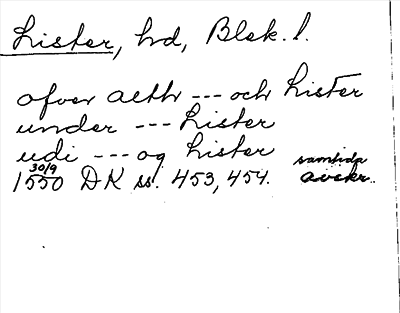 Lister, hd, Blek. l.
ofver aethr --- och Lister
under --- Lister
udi --- og Lister
1550 30/9 DK ss. 453, 454. samtida avskr.